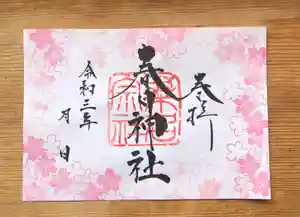 奉拝
春日神社
令和三年
月 日